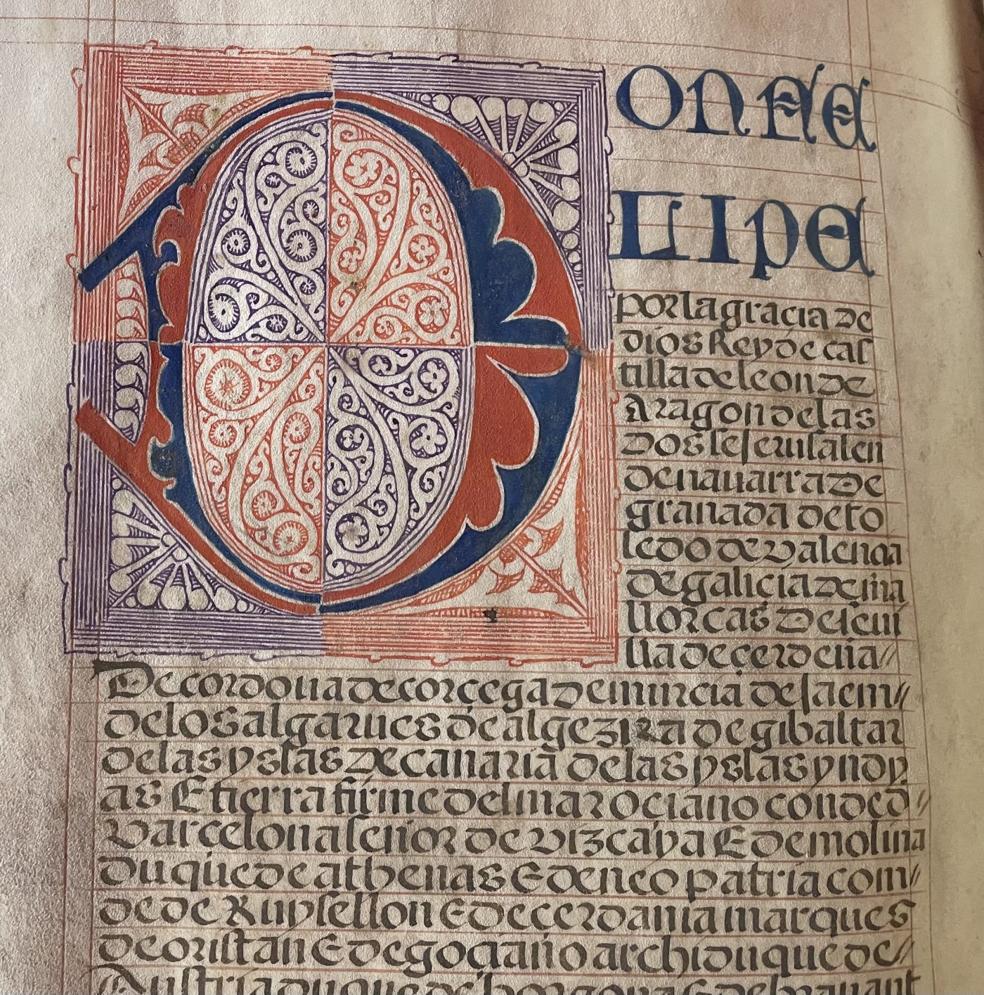 DON FE
LIPE
por la gracia de
dios Rey de cas
tilla de leon de
Aragon de las
Dos sesiçilias de ierusalen
de nauarra de
granada de to
ledo de valençia
de galiçia de ma
llorcas De seui
lla de çerdeña//
De cordoua de corçega De murcia de Jaem//
de los algarues de algezira de gibaltar
de las yslas De canaria de las yslas yndy
as E tierra firme del mar oçiano conde d//
Varcelona señor de vizcaya E de molina
Duque de athenas E de neopatria com//
de de Ruysellon E de çerdania marques
de oristan E de goçiano archiduque de/
Austria duque de borgoña E de brauant